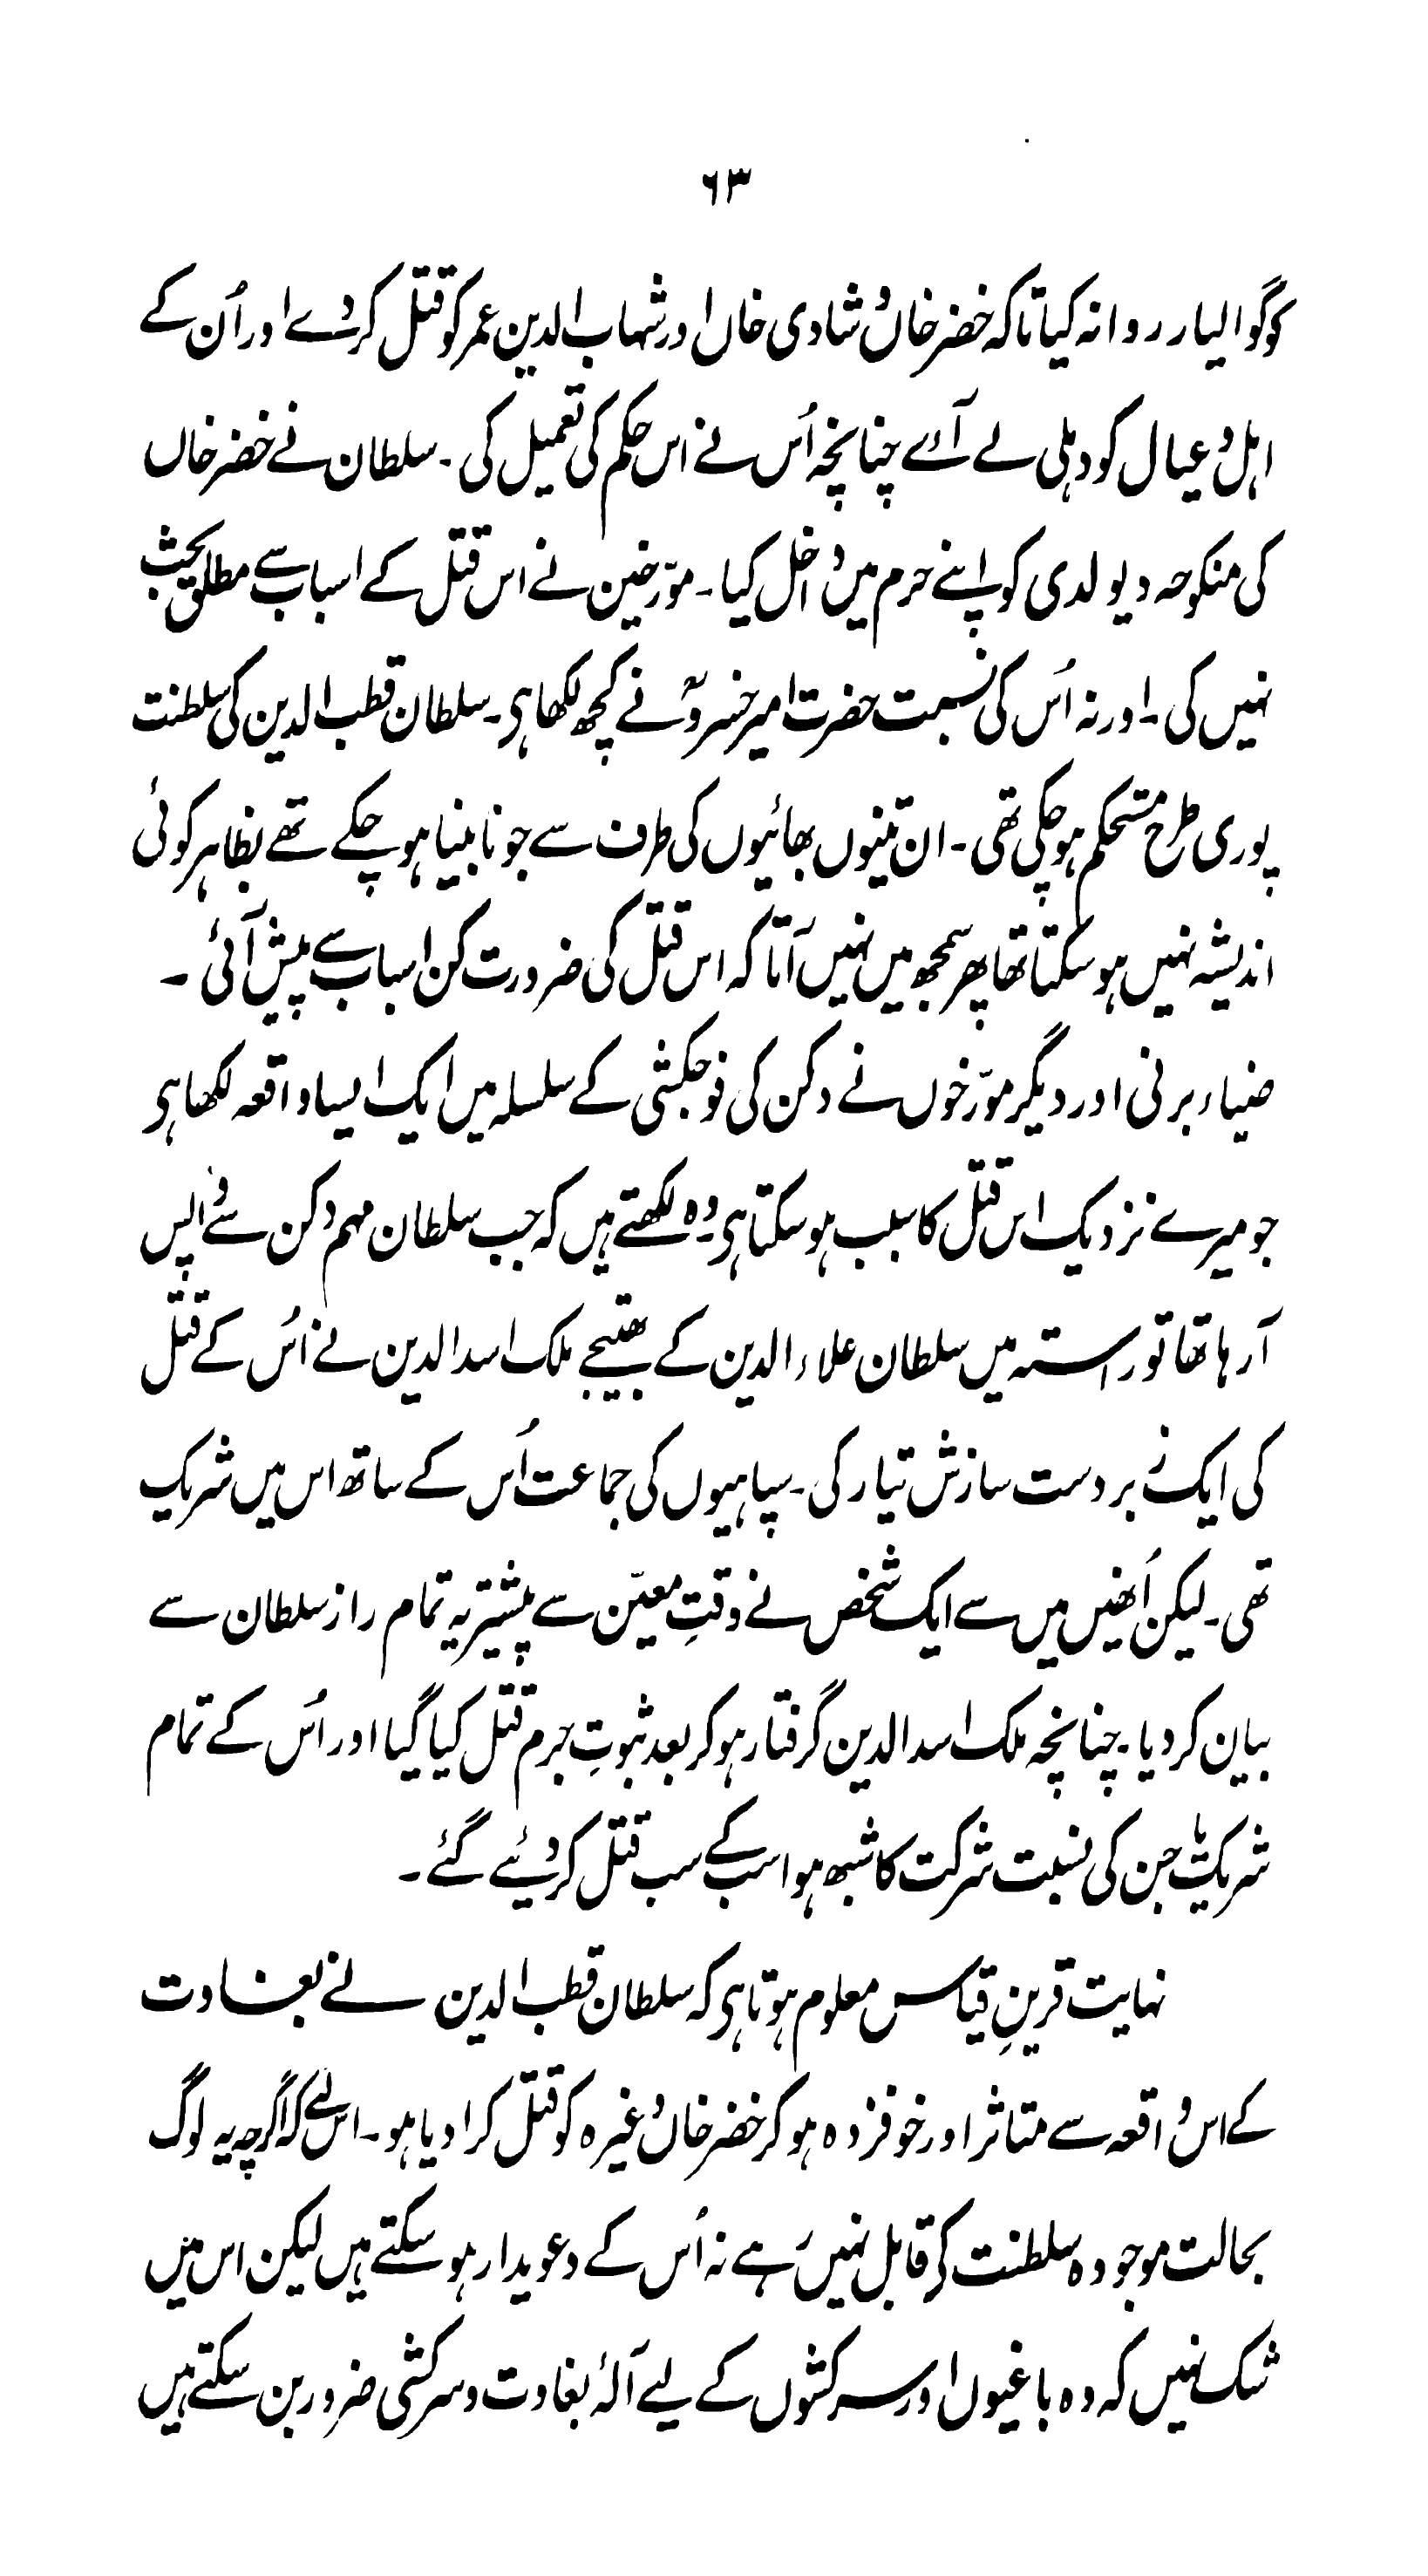 ۶۳
کو گوالیار روانہ کیا تاکہ خضر خاں و شادی خاں اور شہاب الدین عمر کو قتل کر دے اور اُن کے
اہل و عیال کو دہلی لے آے چنانچہ اُس نے اس حکم کی تعمیل کی۔ سلطان نے خضر خاں
کی منکوحہ دیولدی کو اپنے حرم میں داخل کیا۔ مورّخین نے اس قتل کے اسباب سے مطلق بحث
نہیں کی۔ اور نہ اُس کی نسبت حضرت امیر خسروؒ نے کچھ لکھا ہی۔ سلطان قطب الدین کی سلطنت
پوری طرح مستحکم ہو چکی تھی۔ ان تینوں بھائیوں کی طرف سے جو نابینا ہو چکے تھے بظاہر کوئی
اندیشہ نہیں ہو سکتا تھا پھر سمجھ میں نہیں آتا کہ اس قتل کی ضرورت کن اسباب سے پیش آئی۔
ضیاء برنی اور دیگر مورّخوں نے دکن کی فوجکشی کے سلسلہ میں ایک ایسا واقعہ لکھا ہی
جو میرے نزدیک اس قتل کا سبب ہو سکتا ہی۔ وہ لکھتے ہیں کہ جب سلطان مہم دکن سے واپس
آ رہا تھا تو راستہ میں سلطان علاء الدین کے بھتیجے ملک اسد الدین نے اُس کے قتل
کی ایک زبردست سازش تیار کی۔ سپاہیوں کی جماعت اُس کے ساتھ اس میں شریک
تھی۔ لیکن اُنھیں میں سے ایک شخص نے وقتِ معیّن سے پیشتر یہ تمام راز سلطان سے
بیان کر دیا۔ چنانچہ ملک اسد الدین گرفتار ہو کر بعد ثبوتِ جرم قتل کیا گیا اور اُس کے تمام
شریک یا جن کی نسبت شرکت کا شبھ ہوا سب کے سب قتل کر دئیے گئے۔
نہایت قرینِ قیاس معلوم ہوتا ہی کہ سلطان قطب الدین نے بغاوت
کے اس واقعہ سے متاثر اور خوفزدہ ہو کر خضر خاں وغیرہ کو قتل کرا دیا ہو۔ اس لیے کہ اگرچہ یہ لوگ
بحالت موجودہ سلطنت کے قابل نہیں رہے نہ اُس کے دعویدار ہو سکتے ہیں لیکن اس میں
شک نہیں کہ وہ باغیوں اور سرکشوں کے لیے آلۂ بغاوت و سرکشی ضرور بن سکتے ہیں